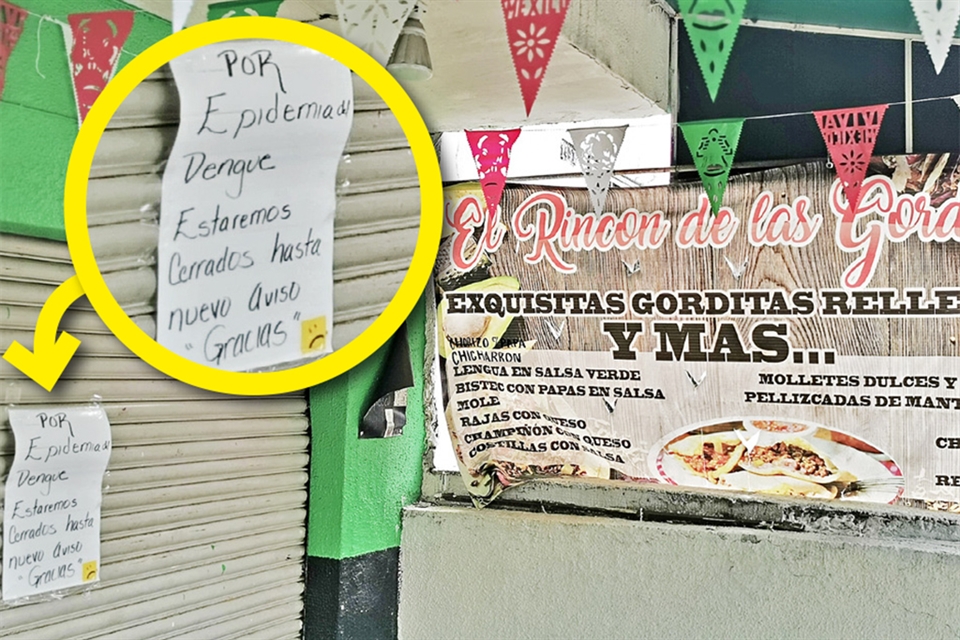 POR
Epidemia del
Dengue
Estaremos
Cerrados hasta
nuevo Aviso
"Gracias"
POR
Epidemia del
Dengue
Estaremos
Cerrados hasta
nuevo Aviso
"Gracias"
MEXICO
VIVA
MEXICO
El Rincon de las Gord
EXQUISITAS GORDITAS RELLE
Y MAS...
CHORIZO Y PAPA
CHICHARRON
LENGUA EN SALSA VERDE
BISTEC CON PAPAS EN SALSA
MOLE
RAJAS CON QUESO
CHAMPIÑON CON QUESO
COSTILLAS CON SALSA
MOLLETES DULCES Y
PELLIZCADAS DE MANT
CH
RE